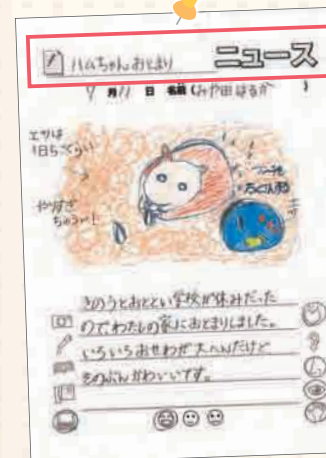 ハムちゃんおとまり ニュース
9月11日 名前(みや田はるか)
エサは
1日5こくらい
やりすぎ
ちゅうい!
きのうとおとといい学校が休みだった
のでわたしの家におとまりしました。
いろいろおせわが大へんだけど
そのぶんかわいいです。